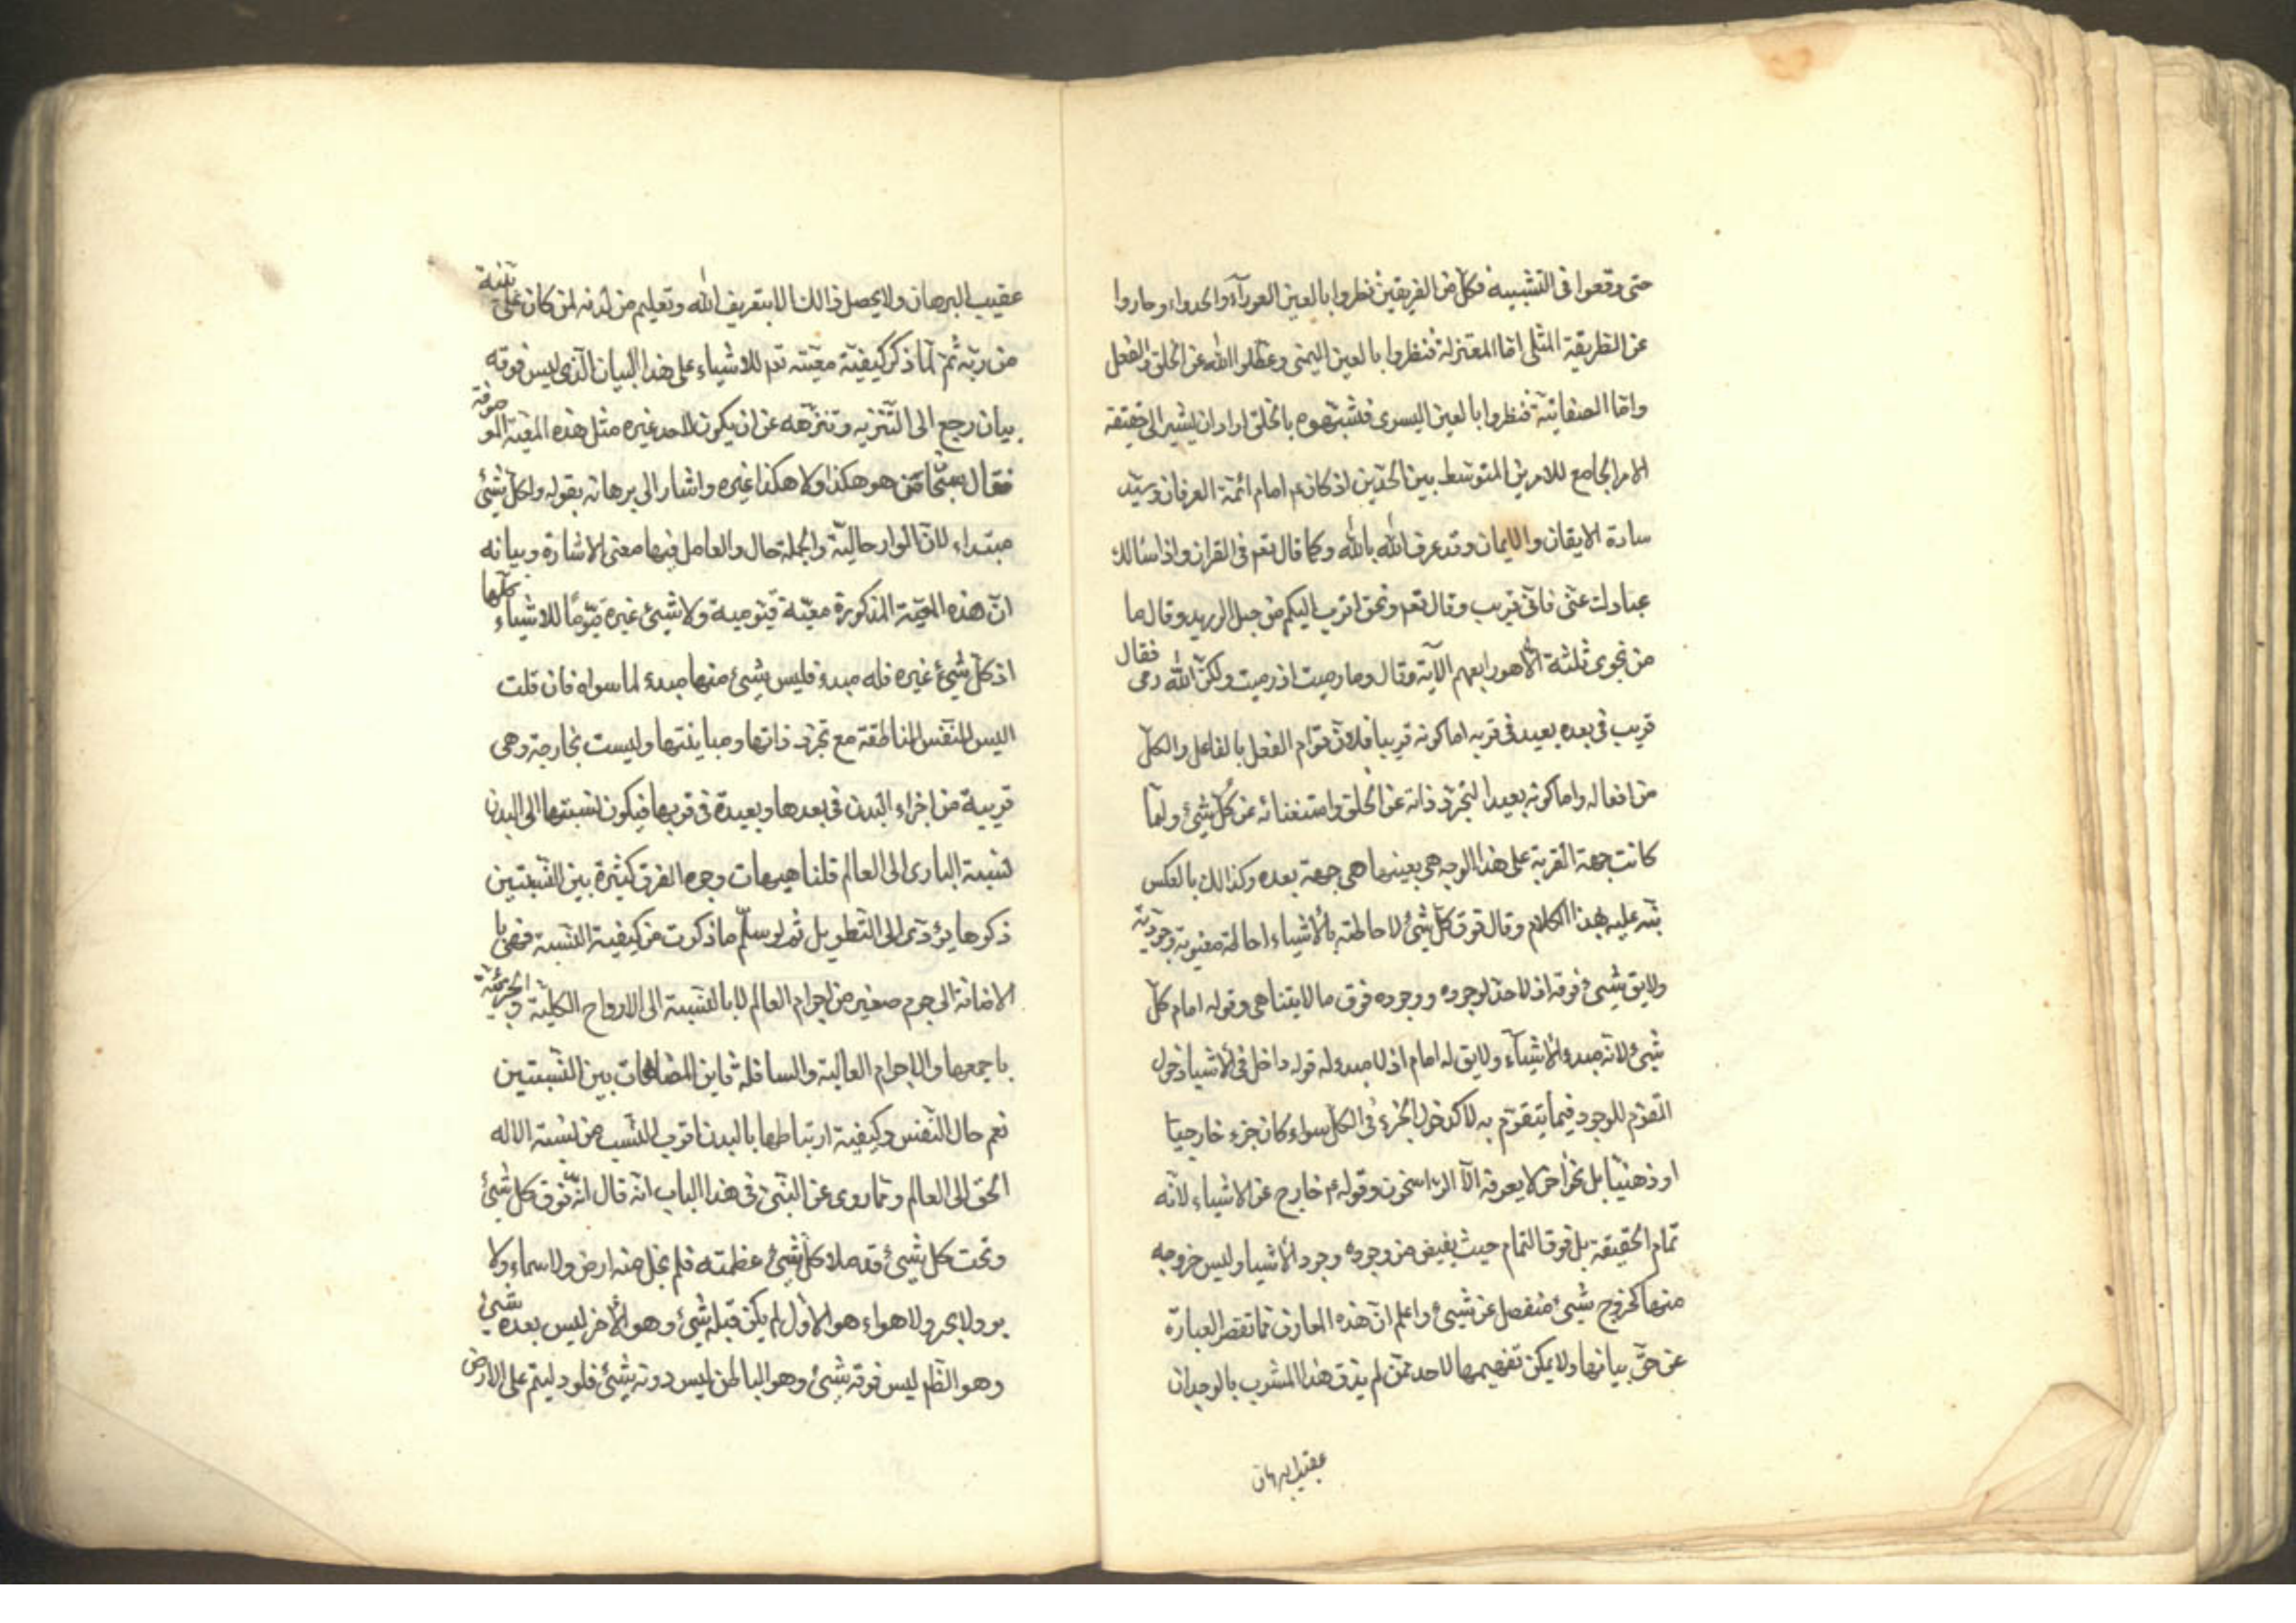 حتى وقعوا فى التشبيه فكل من الفريقين نظروا بالعين العورآء والحدواء وحاروا
عن الطريقة المثلى اما المعتزلة فنظروا بالعين اليمنى وعطلوا الله عن الخلق والفعل
واما الصفاتية فنظروا بالعين اليسرى فشبهوه بالخلق اراد ان يشير الى حقيقة
الامر الجامع للامرين المتوسط بين الحدين اذ كان ع امام ائمة العرفان وسيد
سادة الايقان والايمان وقد عرف الله بالله وكما قال تعم فى القران واذا سالك
عبادى عنى فانى قريب وقال تعم ونحن اقرب اليكم من حبل الوريد وقال ما
من نجوى ثلثة الا هو رابعهم الآية وقال وما رميت اذ رميت ولكن الله رمى فقال
قريب فى بعده بعيد فى قربه اما كونه قريبا فلان قوام الفعل بالفاعل والكل
من افعاله واما كونه بعيدا لتجرد ذاته عن الخلق واستغنائه عن كل شيئ ولما
كانت جهة القربة على هذا الوجه هى بعينها هى جهة بعده وكذالك بالعكس
نبه عليه بهذا الكلام وقال فوق كل شيئ لاحاطته بالاشياء احاطة معنوية وجودية
ولايق شيئ فوقه اذ لا حد لوجوده ووجوده فوق ما لا يتناهى وقوله امام كل
شيئ لانه مبدء الاشيآء ولايق له امام اذ لا مبدء له قوله داخل فى الاشياء دخول
المقوم للوجود فيما يتقوم به لا كدخول الجزء فى الكل سواء كان جزء خارجيا
او ذهنيا بل نحو اخر لا يعرفه الا الراسخون وقوله ع خارج عن الاشياء لانه
تمام الحقيقة بل فوق التمام حيث يفيض من وجوده وجود الاشيا وليس خروجه
منها كخروج شيئ منفصل عن شيئ واعلم ان هذه المعارف مما تقصر العبارة
عن حق بيانها ولا يمكن تفهيمها لاحد ممن لم يذق هذا المشرب بالوجدان
عقيب البرهان
عقيب البرهان ولا يحصل ذالك الا بتعريف الله وتعليم من لدنه لمن كان على بينة
من ربه ثم لما ذكر كيفية معيته تعم للاشياء على هذا البيان الذى ليس فوقه
بيان رجع الى التنزيه وتنزهه عن ان يكون لاحد غيره مثل هذه المعية الموصوفة
فقال سبحان من هو هكذا ولا هكذا غيره واشار الى برهانه بقوله ولكل شيئ
مبتداء لان الواو حالية والجملة حال والعامل فيها معنى الاشارة وبيانه
ان هذه المعية المذكورة معية قيومية ولا شيئ غيره قيوما للاشياء كلها
اذ كل شيئ غيره فله مبدء فليس شيئ منها مبدء لما سواه فان قلت
اليس للنفس الناطقة مع تجرد ذاتها ومباينتها وليست بخارجة وهى
قريبة من اجزاء البدن فى بعدها وبعيدة فى قربها فيكون نسبتها الى البدن
نسبة البارى الى العالم قلنا هيهات وجوه الفرق كثيرة بين النسبتين
ذكرها يؤدى الى التطويل ثم لو سلم ما ذكرت من كيفية النسبة فهى با
لاضافة الى جرم صغير من اجرام العالم لا بالنسبة الى الارواح الكلية والجزئية
باجمعها والاجرام العالية والسافلة فاين المضاهات بين النسبتين
نعم حال النفس وكيفية ارتباطها بالبدن اقرب النسب من نسبة الاله
الحق الى العالم ومما روى عن النبى فى هذا الباب انه قال انه فوق كل شيئ
وتحت كل شيئ قد ملا كل شيئ عظمته فلم يخل منه ارض ولا سماء ولا
بر ولا بحر ولا هواء هو الاول لم يكن قبله شيئ وهو الاخر ليس بعده شيئ
وهو الظم ليس فوقه شيئ وهو الباطن ليس دونه شيئ فلو دليتم على الارض